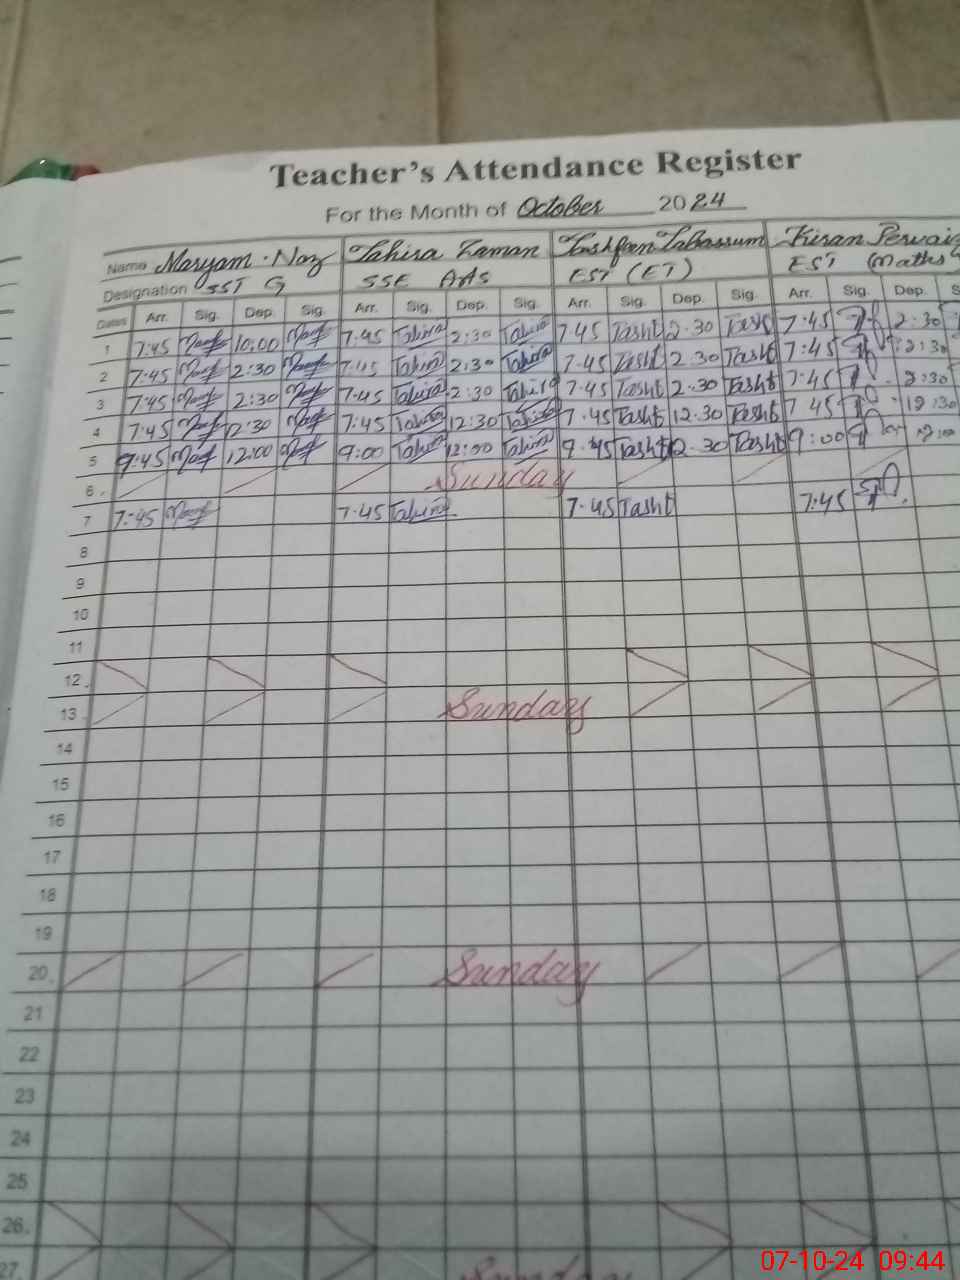 Teacher's Attendance Register
For the Month of October 2024
Name Maryam Naz Tahira Zaman Tashfeen Tabassum Kiran Pervaiz
Designation SST G SSE AAS EST (ET) EST (Maths
Dates Arr. Sig. Dep. Sig. Arr. Sig. Dep. Sig. Arr. Sig. Dep. Sig. Arr. Sig. Dep. S
1 7:45 10:00 7:45 Tahira 2:30 Tahira 7 45 Tasht 2.30 7:45 2:30
2 7:45 2:30 Tahira 2:30 Tahira 7.45 Tasht 2.30 Tasht 7:45 2:30
3 7:45 2:30 7:45 Tahira 2:30 Tahira 7.45 Tasht 2.30 Tasht 7:45 2:30
4 7:45 12:30 7:45 Tahira 12:30 Tahira 7.45 Tasht 12.30 Tasht 7 45 12:30
5 9:45 12:00 9:00 Tahira 12:00 Tahira 9.45 Tasht 12.30 Tasht 9:00
6. Sunday
7 7:45 7:45 Tahira 7.45 Tasht 7:45
8
9
10
11
12.
13. Sunday
14
15
16
17
18
19
20. Sunday
21
22
23
24
25
26.
27. Sunday
07-10-24 09:44